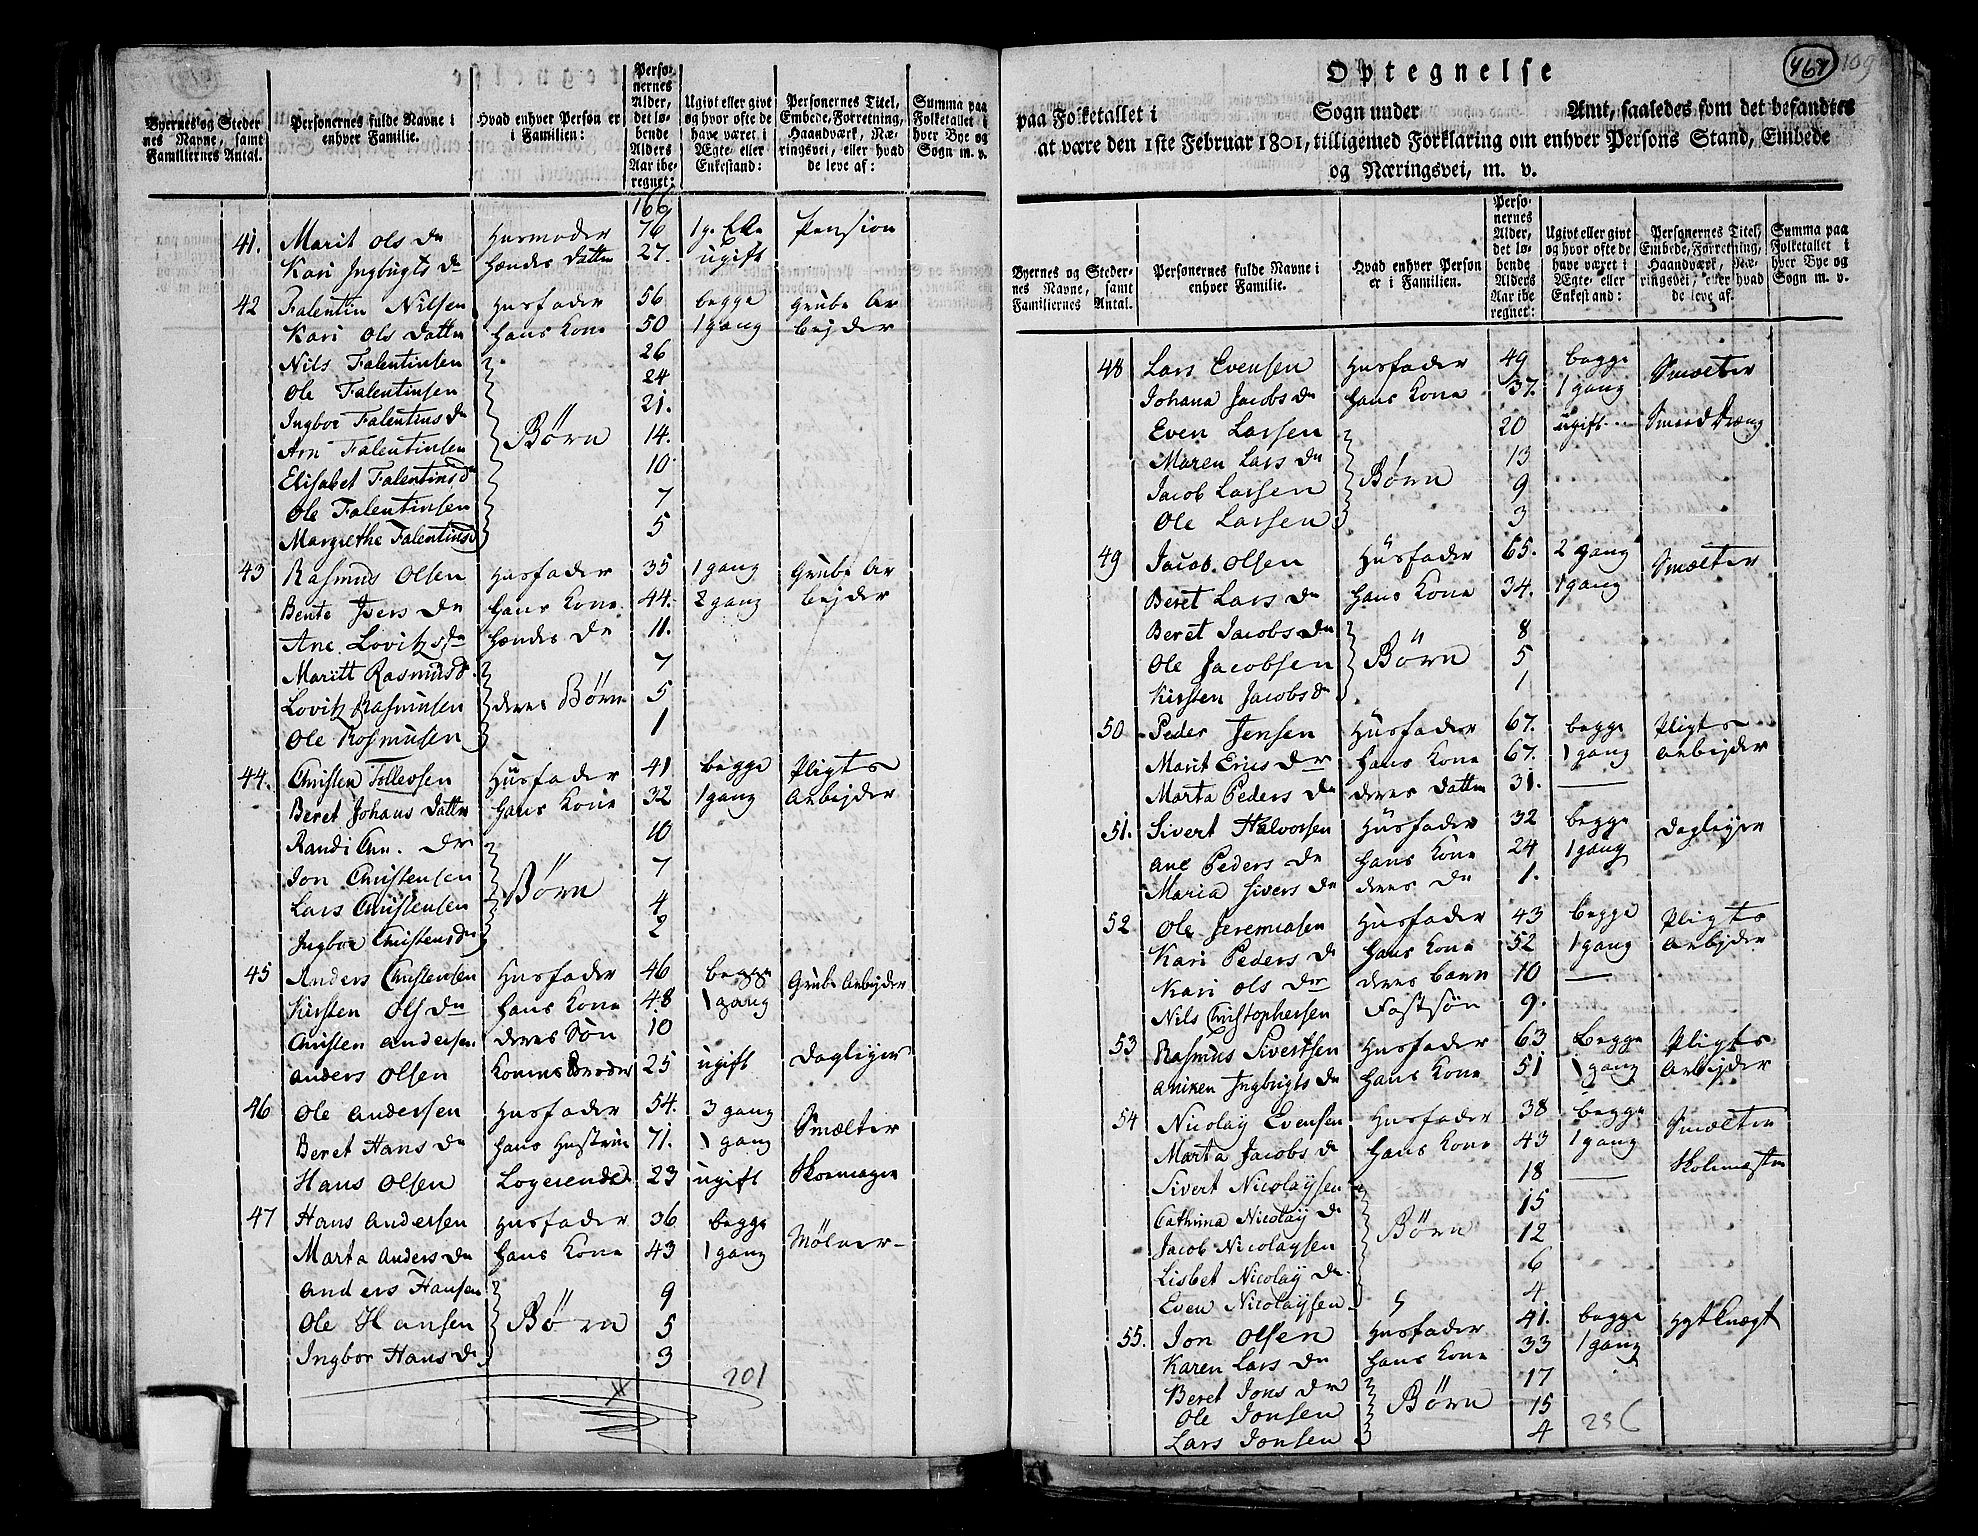 Byernes og Steder
nes Navne, samt
Familiernes Antal.
Personernes fulde Navne i
enhver Familie.
Hvad enhver Person er
i Familien:
Perso-
nernes
Alder,
det lø-
bende
Alders
Aar ibe-
regnet:
Ugivt eller givt
og hvor ofte de
have været i
Ægte- eller
Enkestand:
Personernes Titel,
Embede, Forretning,
Haandværk, Næ-
ringsvei, eller hvad
de leve af:
Summa paa
Folketallet i
hver Bye og
Sogn m. v.
166
41. Marit Ols dr Husmoder 76 1 g. Eke Pension
Kari Ingbrigts dr hendes Datter 27. ugift
42 Falentin Nilsen Husfader 56 begge Grube Ar
Kari Ols Datter hans Kone 50 1 gang bejder
Nils Falentinsen 26
Ole Falentinsen 24
Ingbor Falentins dr 21.
Arn Falentinsen Børn 14.
Elisabet Falentinsd 10.
Ole Falentinsen 7
Margrethe Falentinsd 5
43 Rasmus Olsen Husfader 35 1 gang Grube Ar
Bente Ivers dr hans Kone. 44. 2 gang bejder
Ane Lovitz dr hendes dr 11.
Maritt Rasmusd. 7
Lovitz Rasmusen deres Børn 5
Ole Rosmusen 1
44. Christen Tollevsen Husfader 41 begge Pligts
Beret Johans Datter hans Kone 32 1 gang Arbejder
Randi Chr. dr 10
Jon Christensen 7
Lars Christensen Børn 4
Ingbor Christensdr 2
45 Anders Christensen Husfader 46 begge Grube Arbejder
Kirsten Ols dr hans Kone 48 1 gang
Christen andersen. deres Søn 10
anders Olsen Konens Broder 25 ugift dagligier
46 Ole andersen Husfader 54. 3 gang Smælter
Beret Hans dr hans Hustrue 71. 1 gang
Hans Olsen Logerende 23 ugift Skoemager
47 Hans andersen Husfader 36 begge Mølner
Marta anders dr hans Kone 43 1 gang
anders Hansen 9
Ole Hansen Børn 5
Ingbor Hans dr 3
201
467
109
Optegnelse
paa Folketallet i Sogn under Amt, saaledes som det befandtes
at være den 1ste Februar 1801, tilligemed Forklaring om enhver Persons Stand, Embede
og Næringsvei, m. v.
Byernes og Steder-
nes Navne, samt
Familiernes Antal.
Personernes fulde Navne i
enhver Familie.
Hvad enhver Person
er i Familien:
Perso-
nernes
Alder,
det lø-
bende
Alders
Aar ibe-
regnet:
Ugivt eller givt
og hvor ofte de
have været i
Ægte- eller
Enkestand:
Personernes Titel,
Embede, Forretning,
Haandværk, Næ-
ringsvei, eller hvad
de leve af:
Summa paa
Folketallet i
hver Bye og
Sogn m. v.
48 Lars Evensen Husfader 49 begge Smælter
Johana Jacobs dr hans Kone 37. 1 gang
Even Larsen 20 ugift Smed Dreng
Maren Lars dr 13
Jacob Larsen Børn 9
Ole Larsen 3
49 Jacob Olsen Husfader 65. 2 gang Smælter
Beret Lars dr hans Kone 34. 1 gang
Beret Jacobs dr 8
Ole Jacobsen Børn 5
Kirsten Jacobs dr 1
50 Peder Jensen Husfader 67. begge Pligts
Marit Erics dr hans Kone 67. 1 gang arbejder
Marta Peders dr deres Datter 31.
51. Sivert Halvorsen Husfader 32 begge dagligier
ane Peders dr hans Kone 24 1 gang
Maria Sivers dr deres dr 1.
52 Ole Jeremiasen Husfader 43 begge Pligts
Kari Peders d hans Kone 52 1 gang arbejder
Kari Ols dr deres barn 10
Nils Christophersen Fostsøn 9.
53 Rasmus Sivertsen Husfader 63 begge Pligts
aniken Ingbrigts dr hans Kone 51 1 gang arbejder
54 Nicolay Evensen Husfader 38 begge Smælter
Marta Jacobs d hans Kone 43 1 gang
Sivert Nicolaysen 18 Skolemester
Cathrina Nicolay d 15
Jacob Nicolaysen Børn 12
Lisbet Nicolay dr. 6
Even Nicolaysen 4
55. Jon Olsen Husfader 41. begge Hytknægt
Karen Lars dr hans Kone 33 1 gang
Beret Jons dr 17
Ole Jonsen Børn 15
Lars Jonsen 4
236